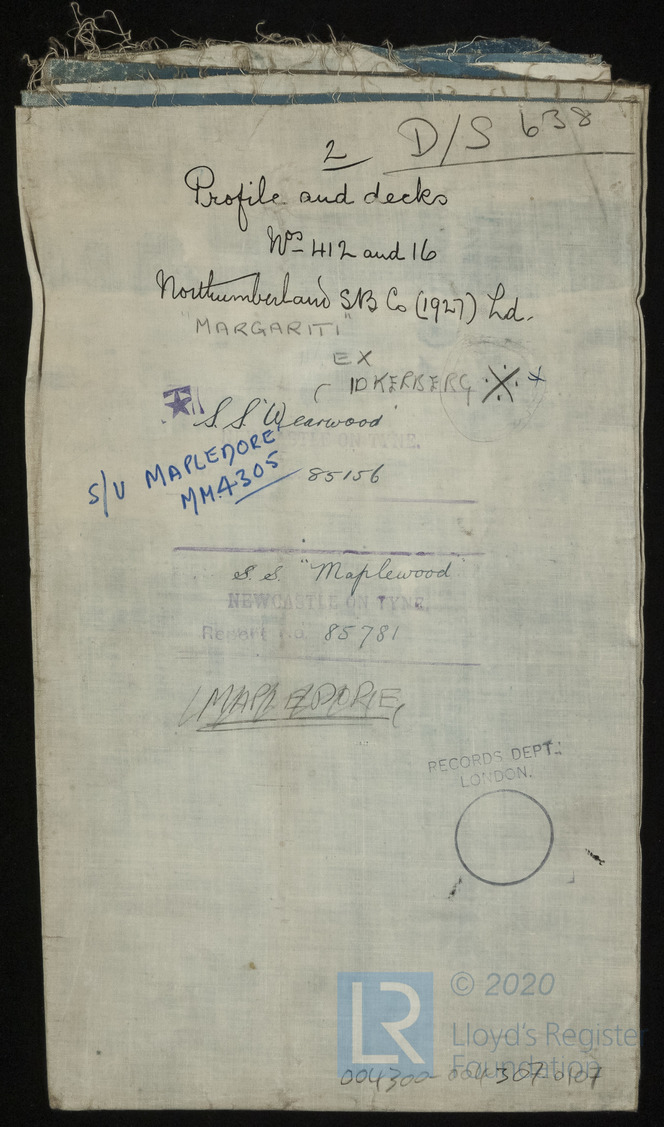 2 D/S 638
Profile and decks
Nos 412 and 16
Northumberland SB Co (1927) Ld.
"MARGARITI"
EX
( IDKERBERG
S.S. "Wearwood"
NEWCASTLE ON TYNE.
S/V MAPLEDORE
MM4305
85156
S.S. "Maplewood"
NEWCASTLE ON TYNE.
Report No. 85781
(MAPLEDORE)
RECORDS DEPT.:
LONDON.
LR
© 2020
Lloyd's Register
Foundation
004300-004307-0107